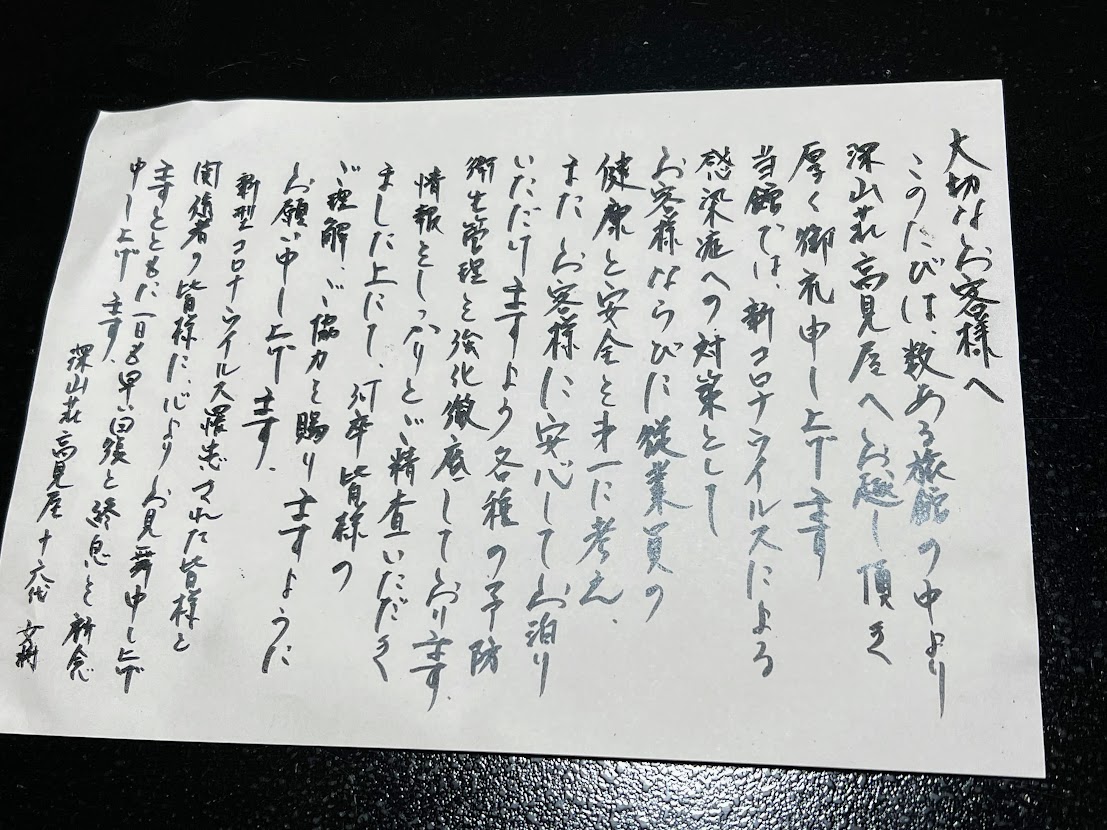 大切なお客様へ
このたびは、数ある旅館の中より
深山荘高見屋へお越し頂き
厚く御礼申し上げます
当館では、新コロナウイルスによる
感染症への対策として
お客様ならびに従業員の
健康と安全を第一に考え、
また お客様に安心してお泊り
いただけますよう各種の予防
衛生管理を強化徹底しております。
情報をしっかりとご精査いただき
ました上にて、何卒皆様の
ご理解、ご協力を賜りますように
お願い申し上げます。
新型コロナウイルス罹患された皆様と
関係者の皆様に、心よりお見舞申し上げ
ますとともに一日も早い回復と終息を祈念
申し上げます。
深山荘高見屋 十六代